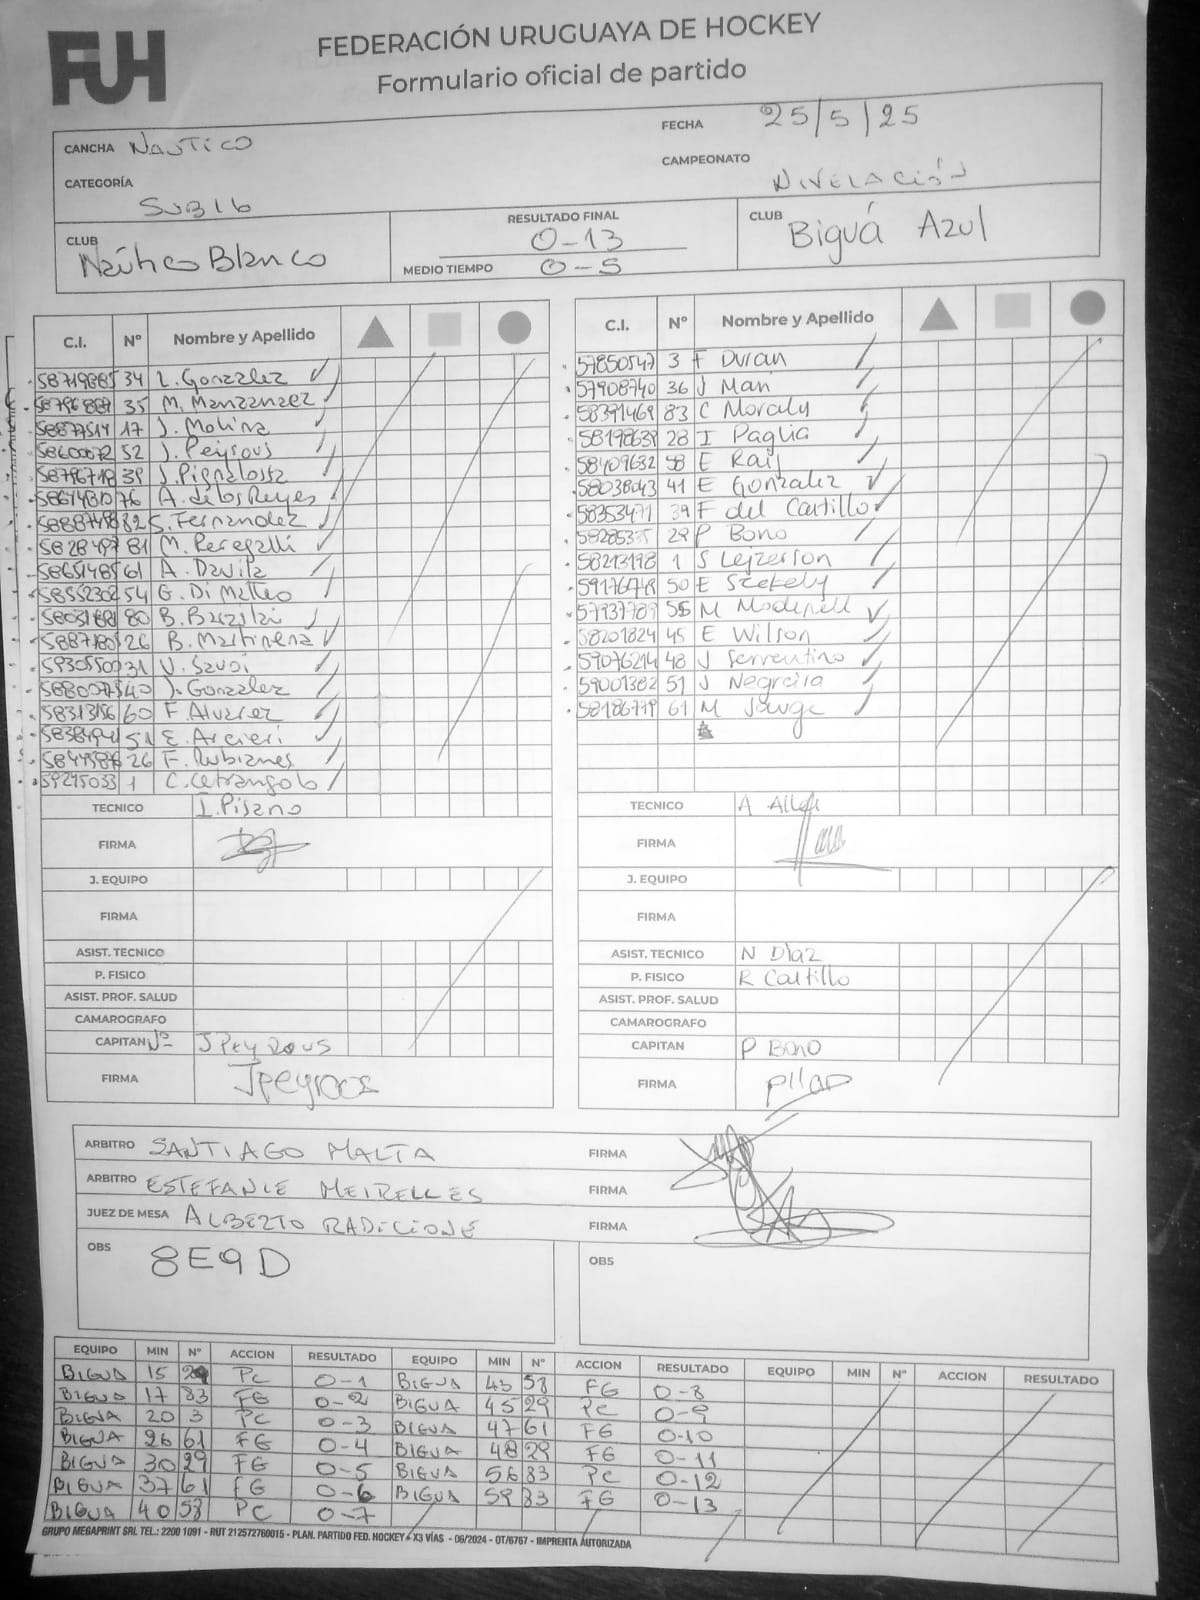 FUH
FEDERACIÓN URUGUAYA DE HOCKEY
Formulario oficial de partido
CANCHA NAUTICO
FECHA 25/5/25
CATEGORÍA SUB16
CAMPEONATO NIVELACIÓN
CLUB Naútico Blanco
RESULTADO FINAL 0-13
MEDIO TIEMPO 0-5
CLUB Biguá Azul
C.I. Nº Nombre y Apellido
34 L. Gonzalez
35 M. Manzanaez
58877514 17 J. Molina
58600072 52 J. Peyrous
39 J. Pignalossa
76 A. delos Reyes
82 S. Fernandez
81 M. Peregalli
61 A. Davila
54 G. Di Matteo
80 B. Barzilai
26 B. Martirena
31 V. Savoi
40 J. Gonzalez
58313156 60 F. Alvarez
51 E. Arcieri
26 F. Rubianes
59245033 1 C. Cetrangolo
TECNICO I. Pisano
FIRMA
J. EQUIPO
FIRMA
ASIST. TECNICO
P. FISICO
ASIST. PROF. SALUD
CAMAROGRAFO
CAPITAN Nº J PEYROUS
FIRMA Jpeyrous
C.I. Nº Nombre y Apellido
57850547 3 F Duran
57908740 36 J Mari
58391469 83 C Moraly
58198639 28 I Paglia
58409632 58 E Rail
58038043 41 E Gonzalez
58353471 39 F del Castillo
29 P Bono
58213198 1 S Lejzerson
50 E Szekely
57937789 55 M Modernell
58201824 45 E Wilson
59076214 48 J Serrentino
59001382 51 J Negreira
58186719 61 M Jauge
TECNICO A Alle
FIRMA
J. EQUIPO
FIRMA
ASIST. TECNICO N Diaz
P. FISICO R Castillo
ASIST. PROF. SALUD
CAMAROGRAFO
CAPITAN P Bono
FIRMA pilar
ARBITRO SANTIAGO MALTA FIRMA
ARBITRO ESTEFANIE MEIRELLES FIRMA
JUEZ DE MESA ALBERTO RADICIONE FIRMA
OBS 8E9D
OBS
EQUIPO MIN Nº ACCION RESULTADO EQUIPO MIN Nº ACCION RESULTADO EQUIPO MIN Nº ACCION RESULTADO
BIGUA 15 29 PC 0-1 BIGUA 43 58 FG 0-8
BIGUA 17 83 FG 0-2 BIGUA 45 29 PC 0-9
BIGUA 20 3 PC 0-3 BIGUA 47 61 FG 0-10
BIGUA 26 61 FG 0-4 BIGUA 48 29 FG 0-11
BIGUA 30 29 FG 0-5 BIGUA 56 83 PC 0-12
BIGUA 37 61 FG 0-6 BIGUA 59 83 FG 0-13
BIGUA 40 58 PC 0-7
GRUPO MEGAPRINT SRL TEL.: 2200 1091 - RUT 212572760015 - PLAN. PARTIDO FED. HOCKEY - X3 VÍAS - 06/2024 - OT/6767 - IMPRENTA AUTORIZADA